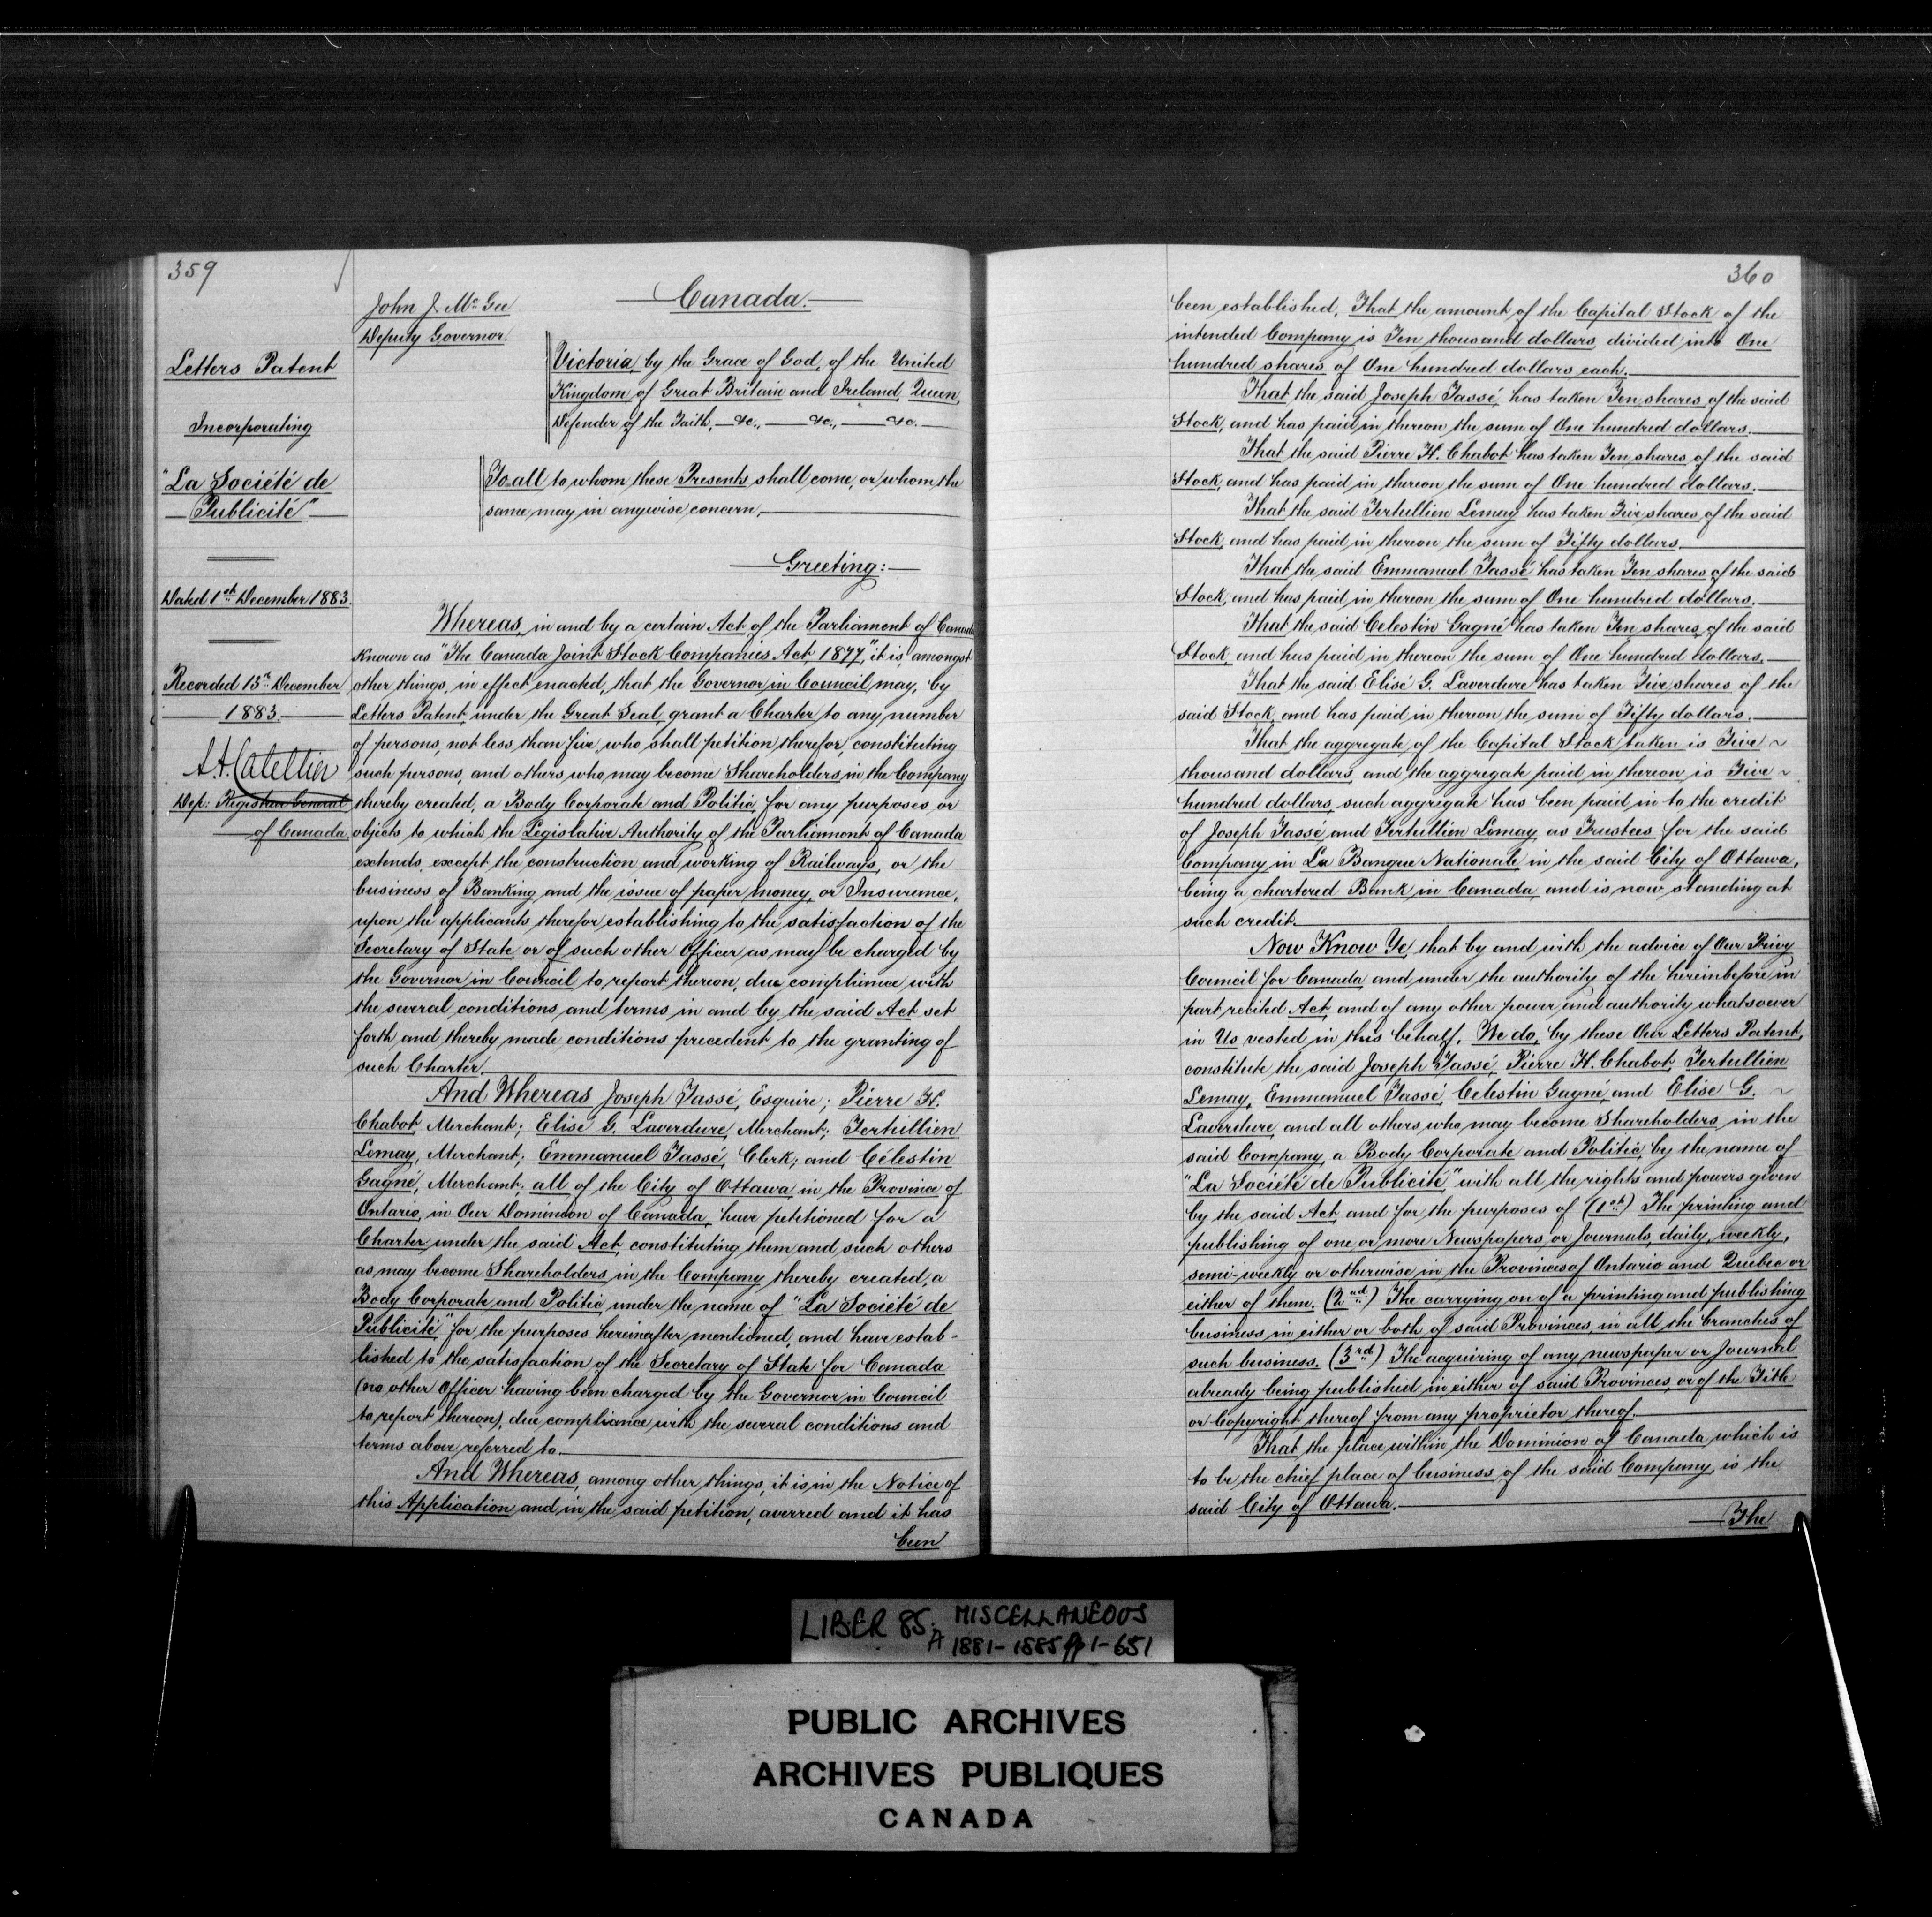 359
John J. McGee
Deputy Governor.
Canada.
Letters Patent
Incorporating
"La Société de
Publicité"
Dated 1st December 1883.
Recorded 13th December
1883
A. Catellier
Dep: Registrar General
of Canada
Victoria, by the Grace of God, of the United
Kingdom of Great Britain and Ireland, Queen,
Defender of the Faith, &c., &c., &c.
To all to whom these Presents shall come, or whom the
same may in anywise concern,
Greeting:
Whereas, in and by a certain Act of the Parliament of Canada
known as "The Canada Joint Stock Companies Act, 1877," it is, amongst
other things, in effect enacted, that the Governor in Council may, by
Letters Patent, under the Great Seal, grant a Charter to any number
of persons, not less than five, who shall petition therefor, constituting
such persons, and others who may become Shareholders in the Company
thereby created, a Body Corporate and Politic, for any purposes or
objects to which the Legislative Authority of the Parliament of Canada
extends, except the construction and working of Railways, or the
business of Banking and the issue of paper money, or Insurance,
upon the applicants therefor establishing to the satisfaction of the
Secretary of State or of such other Officer as may be charged by
the Governor in Council to report thereon, due compliance with
the several conditions and terms in and by the said Act set
forth and thereby made conditions precedent to the granting of
such Charter.
And Whereas Joseph Tassé, Esquire; Pierre H.
Chabot, Merchant; Elisé G. Laverdure, Merchant; Tertullien
Lemay, Merchant; Emmanuel Tassé, Clerk; and Célestin
Gagné, Merchant; all of the City of Ottawa in the Province of
Ontario, in Our Dominion of Canada, have petitioned for a
Charter under the said Act, constituting them and such others
as may become Shareholders in the Company thereby created, a
Body Corporate and Politic, under the name of "La Société de
Publicité" for the purposes hereinafter mentioned, and have estab-
lished to the satisfaction of the Secretary of State for Canada
(no other Officer having been charged by the Governor in Council
to report thereon), due compliance with the several conditions and
terms above referred to.
And Whereas, among other things, it is in the Notice of
this Application and in the said petition, averred and it has
been
360
been established, That the amount of the Capital Stock of the
intended Company is Ten thousand dollars, divided into One
hundred shares of One hundred dollars each.
That the said Joseph Tassé, has taken Ten shares of the said
Stock, and has paid in thereon the sum of One hundred dollars.
That the said Pierre H. Chabot has taken Ten shares of the said
Stock, and has paid in thereon the sum of One hundred dollars.
That the said Tertullien Lemay has taken Five shares of the said
Stock, and has paid in thereon the sum of Fifty dollars.
That the said Emmanuel Tassé has taken Ten shares of the said
Stock, and has paid in thereon the sum of One hundred dollars.
That the said Celestin Gagné has taken Ten shares of the said
Stock, and has paid in thereon the sum of One hundred dollars.
That the said Elisé G. Laverdure has taken Five shares of the
said Stock, and has paid in thereon the sum of Fifty dollars.
That the aggregate of the Capital Stock taken is Five
thousand dollars, and the aggregate paid in thereon is Five
hundred dollars, such aggregate has been paid in to the credit
of Joseph Tassé and Tertullien Lemay as Trustees for the said
Company in La Banque Nationale in the said City of Ottawa,
being a chartered Bank in Canada, and is now standing at
such credit.
Now Know Ye, that by and with the advice of Our Privy
Council for Canada and under the authority of the hereinbefore in
part recited Act, and of any other power and authority whatsoever
in Us vested in this behalf, We do, by these Our Letters Patent,
constitute the said Joseph Tassé, Pierre H. Chabot, Tertullien
Lemay, Emmanuel Tassé, Celestin Gagné, and Elise G.
Laverdure, and all others who may become Shareholders in the
said Company, a Body Corporate and Politic, by the name of
"La Société de Publicité" with all the rights and powers given
by the said Act, and for the purposes of (1st) The printing and
publishing of one or more Newspapers, or Journals, daily, weekly,
semi-weekly or otherwise in the Provinces of Ontario and Quebec or
either of them. (2nd) The carrying on of a printing and publishing
business in either or both of said Provinces, in all the branches of
such business. (3rd) The acquiring of any newspaper or Journal
already being published in either of said Provinces, or of the Title
or Copyright thereof from any proprietor thereof.
That the place within the Dominion of Canada which is
to be the chief place of business of the said Company, is the
said City of Ottawa.
The
LIBER 85. MISCELLANEOUS
A 1881-1885 pp 1-651
PUBLIC ARCHIVES
ARCHIVES PUBLIQUES
CANADA